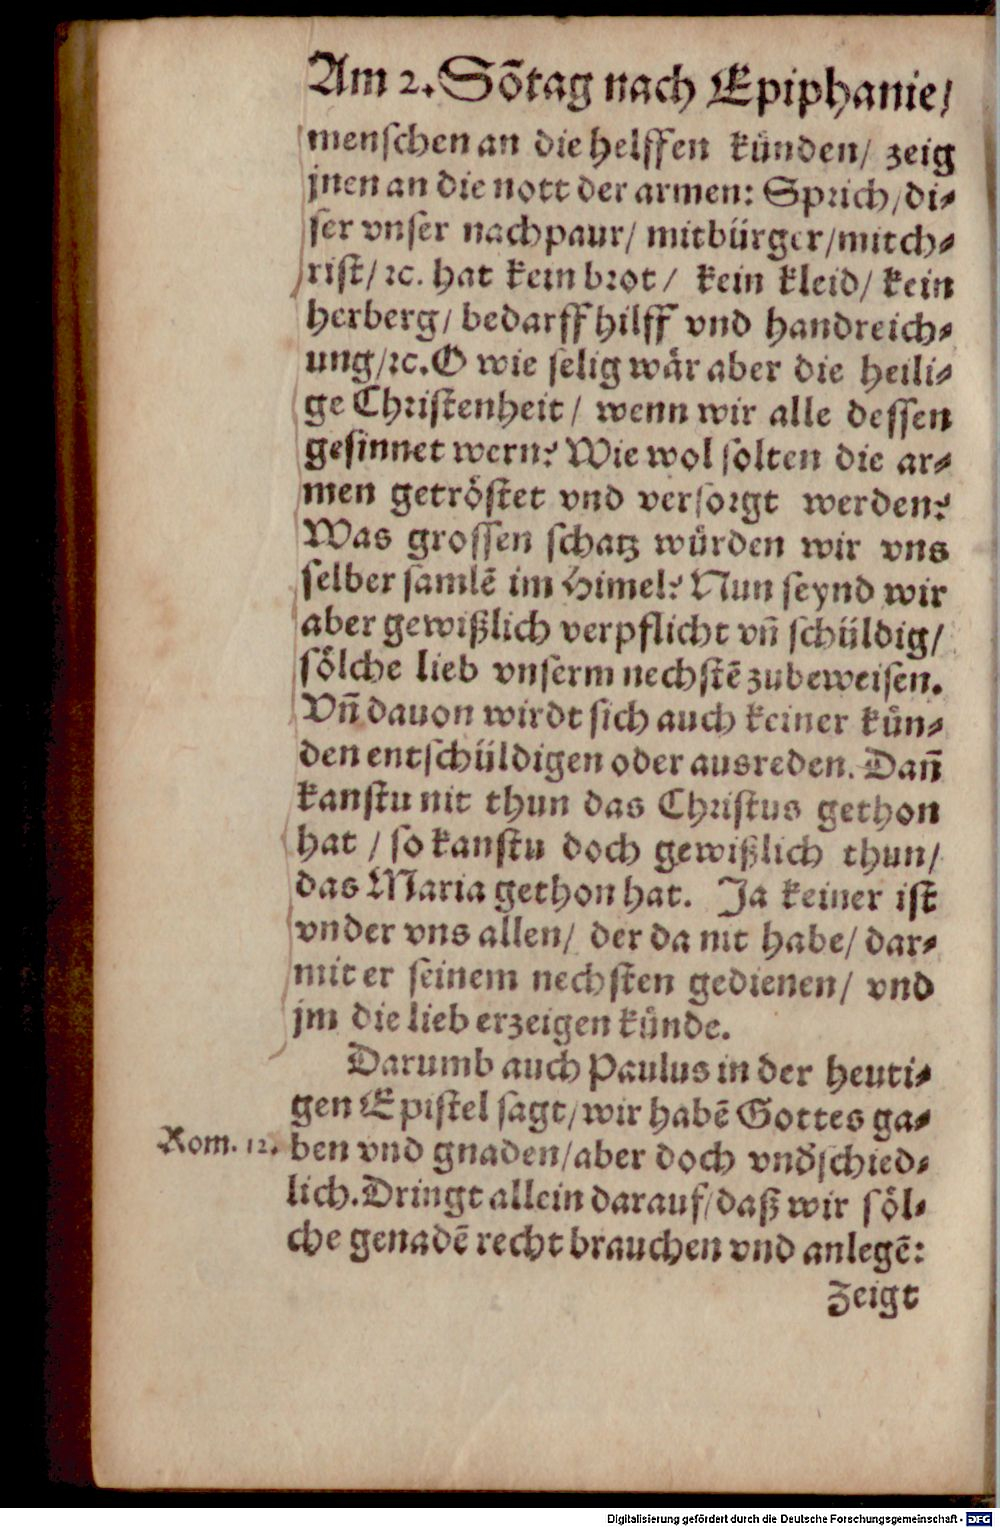 Am 2. Sõtag nach Epiphanie/
menschen an die helffen künden/ zeig
jnen an die nott der armen: Sprich/di⸗
ser vnser nachpaur/ mitbürger/mitch⸗
rist/ ꝛc. hat kein brot/ kein kleid/ kein
herberg/ bedarff hilff vnd handreich⸗
ung/ꝛc. O wie selig wår aber die heili⸗
ge Christenheit/ wenn wir alle dessen
gesinnet wern? Wie wol solten die ar⸗
men getröstet vnd versorgt werden?
Was grossen schatz würden wir vns
selber samlẽ im Himel? Nun seynd wir
aber gewißlich verpflicht vñ schüldig/
sölche lieb vnserm nechstẽ zubeweisen.
Vñ dauon wirdt sich auch keiner kün⸗
den entschüldigen oder ausreden. Dañ
kanstu nit thun das Christus gethon
hat / so kanstu doch gewißlich thun/
das Maria gethon hat. Ja keiner ist
vnder vns allen/ der da nit habe/ dar⸗
mit er seinem nechsten gedienen/ vnd
jm die lieb erzeigen künde.
Darumb auch Paulus in der heuti⸗
gen Epistel sagt/wir habẽ Gottes ga⸗
Rom. 12. ben vnd gnaden/aber doch vnd̕schied⸗
lich. Dringt allein darauf/daß wir söl⸗
che genadẽ recht brauchen vnd anlegẽ:
Zeigt
Digitalisierung gefördert durch die Deutsche Forschungsgemeinschaft - DFG